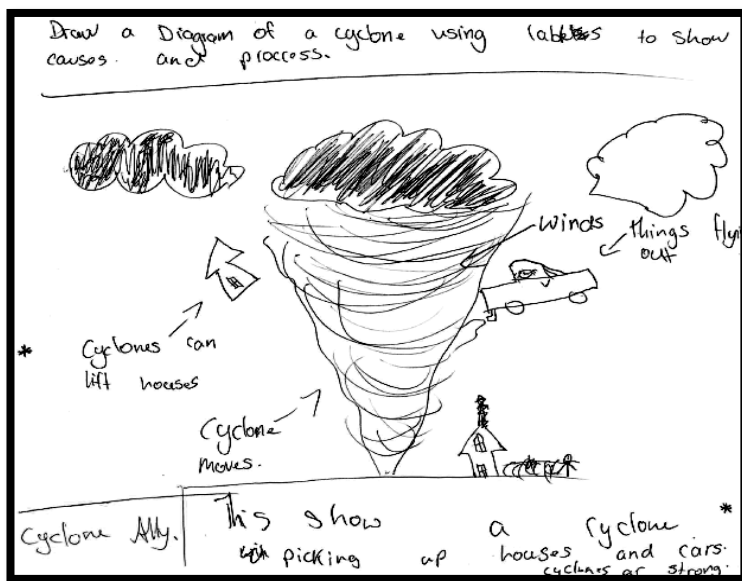 Draw a Diagram of a cyclone using labels to show
causes. and proccess.
winds
things flyi
out
Cyclones can
lift houses
*
Cyclone
moves.
Cyclone Ally.
This show a Cyclone. *
picking up houses and cars.
cyclones ar strong.